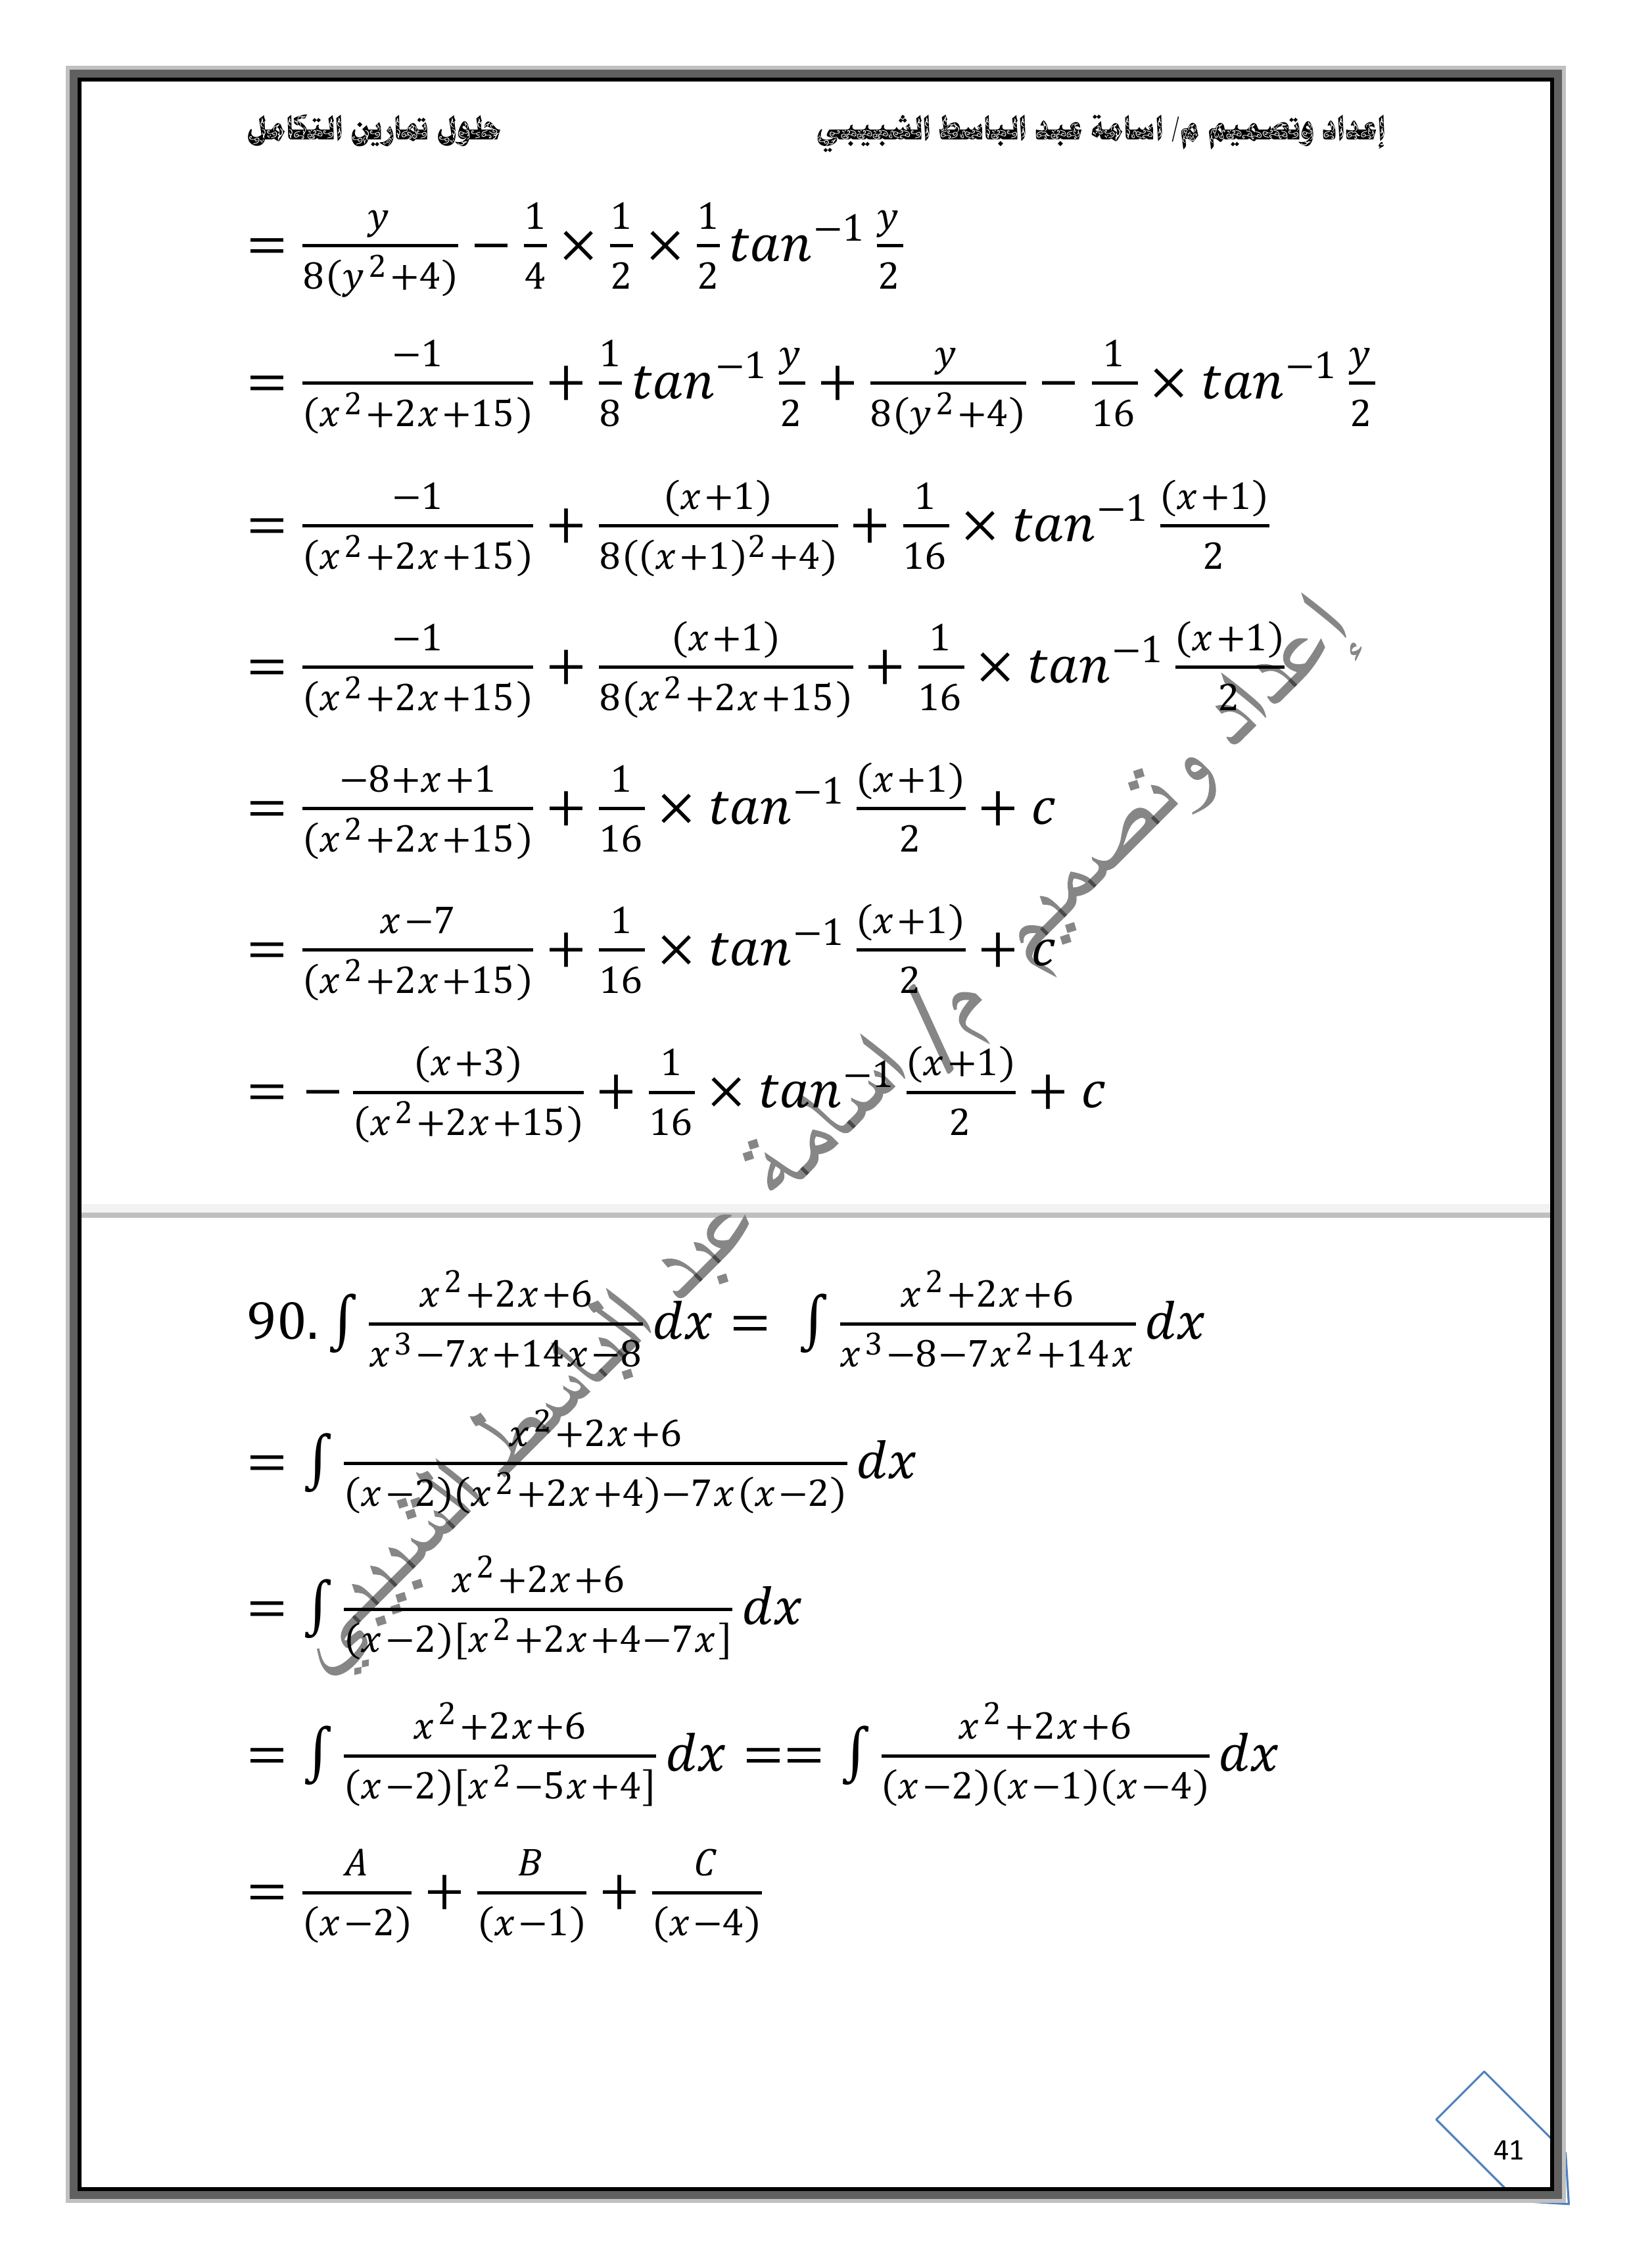 إعداد وتصميم م/ اسامة عبد الباسط الشبيبي حلول تمارين التكامل
= \frac{y}{8(y^2+4)} - \frac{1}{4} × \frac{1}{2} × \frac{1}{2} tan^{-1} \frac{y}{2}
= \frac{-1}{(x^2+2x+15)} + \frac{1}{8} tan^{-1} \frac{y}{2} + \frac{y}{8(y^2+4)} - \frac{1}{16} × tan^{-1} \frac{y}{2}
= \frac{-1}{(x^2+2x+15)} + \frac{(x+1)}{8((x+1)^2+4)} + \frac{1}{16} × tan^{-1} \frac{(x+1)}{2}
= \frac{-1}{(x^2+2x+15)} + \frac{(x+1)}{8(x^2+2x+15)} + \frac{1}{16} × tan^{-1} \frac{(x+1)}{2}
= \frac{-8+x+1}{(x^2+2x+15)} + \frac{1}{16} × tan^{-1} \frac{(x+1)}{2} + c
= \frac{x-7}{(x^2+2x+15)} + \frac{1}{16} × tan^{-1} \frac{(x+1)}{2} + c
= - \frac{(x+3)}{(x^2+2x+15)} + \frac{1}{16} × tan^{-1} \frac{(x+1)}{2} + c
90. ∫ \frac{x^2+2x+6}{x^3-7x+14x-8} dx = ∫ \frac{x^2+2x+6}{x^3-8-7x^2+14x} dx
= ∫ \frac{x^2+2x+6}{(x-2)(x^2+2x+4)-7x(x-2)} dx
= ∫ \frac{x^2+2x+6}{(x-2)[x^2+2x+4-7x]} dx
= ∫ \frac{x^2+2x+6}{(x-2)[x^2-5x+4]} dx == ∫ \frac{x^2+2x+6}{(x-2)(x-1)(x-4)} dx
= \frac{A}{(x-2)} + \frac{B}{(x-1)} + \frac{C}{(x-4)}
إعداد وتصميم م/ اسامة عبد الباسط الشبيبي
41